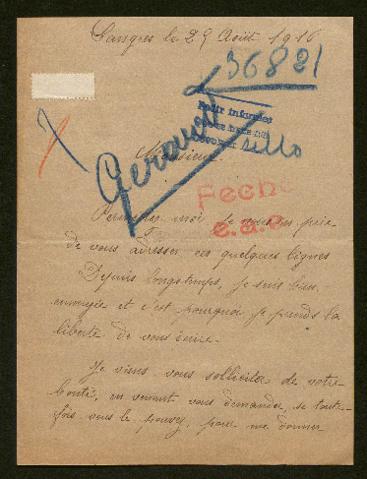 Langres le 29 Août 1916
36821
Pour informer
Sello
Gerardo
Monsieur
Fecho
e.a.e
Permettez moi je vous en prie
de vous adresser ces quelques lignes
Depuis longtemps, je suis bien
ennuyée et c'est pourquoi je prends la
liberté de vous écrire.
Je viens vous sollicita de votre
bonté, en venant vous demander, se toute-
fois vous le pouvez, pour me donner